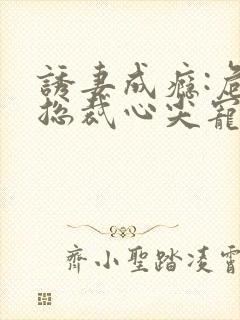 誘妻成癮:
總裁心尖寵
齊小聖踏凌霄